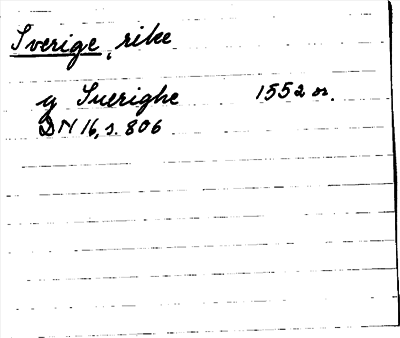 Sverige, rike
y Suerighe 1552 or.
DN 16, s. 806